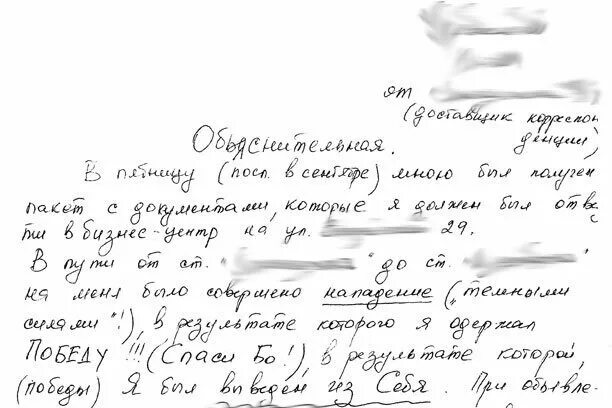 от
(доставщик корреспон
денции)
Объяснительная.
В пятницу (посл. в сентябре) мною был получен
пакет с документами, которые я должен был отвез
ти в бизнес-центр на ул. 29.
В пути от ст. " " до ст. " "
на меня было совершено нападение ("темными
силами"!), в результате которого я одержал
ПОБЕДУ!!! (Спаси Бо!), в результате которой,
(победы) Я был выведен из Себя. При объявле-